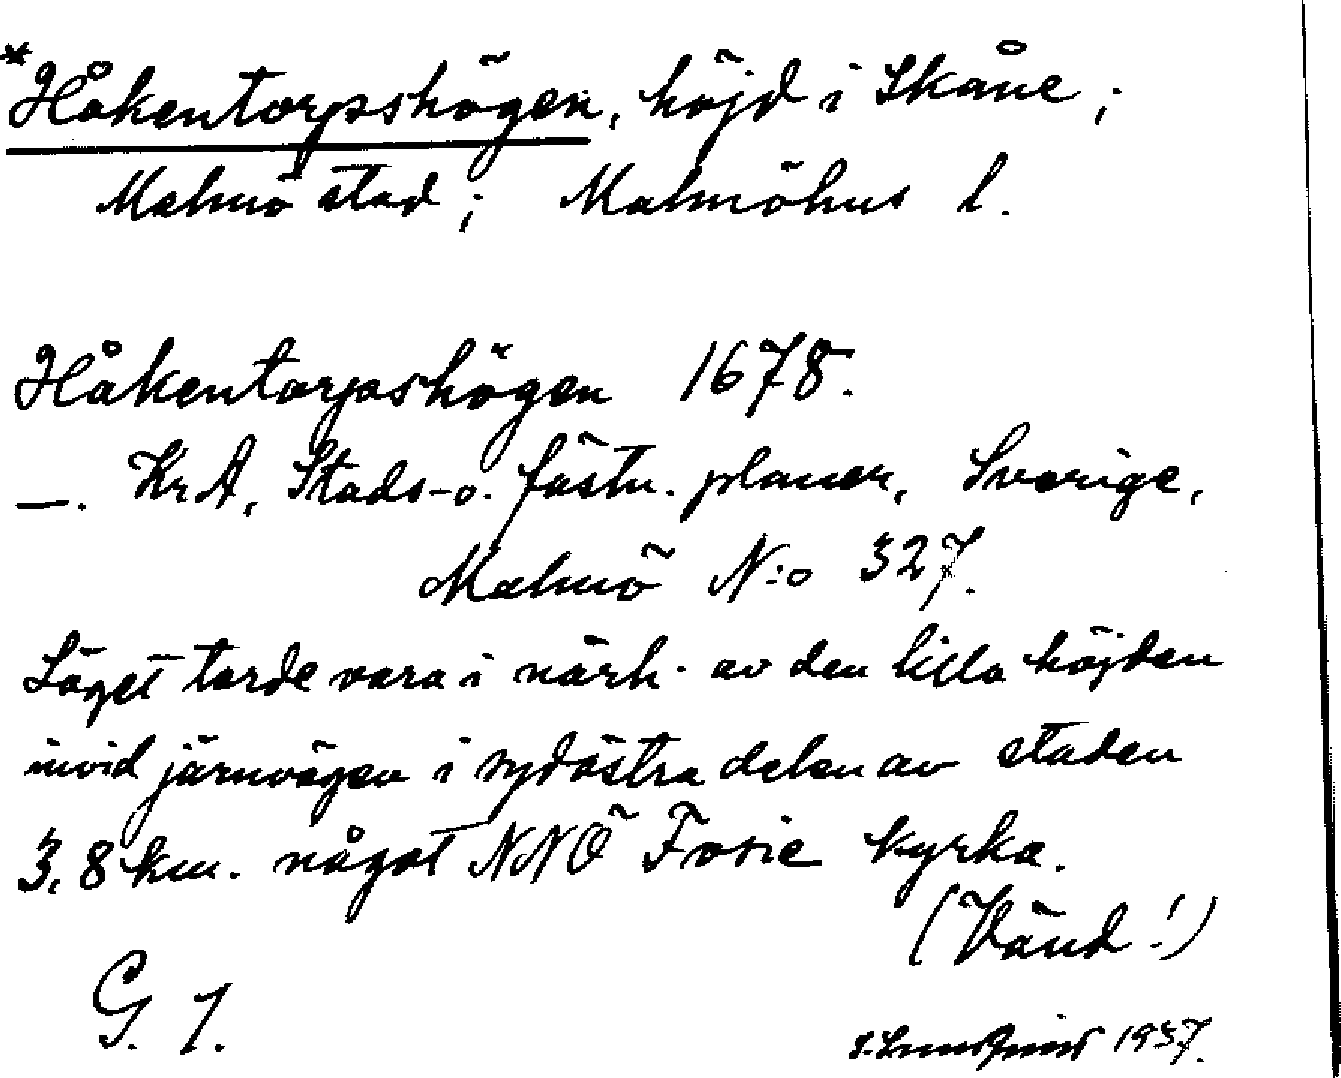 *Håkentorpshögen, höjd i Skåne;
Malmö stad; Malmöhus l.
Håkentorpshögen 1678.
—. KrA, Stads- o. fästn. planer, Sverige,
Malmö N:o 327.
Läget torde vara i närh. av den lilla höjden
invid järnvägen i sydöstra delen av staden
3,8 km. något NNÖ Fosie kyrka.
(Vänd!)
G. 1.
1937.